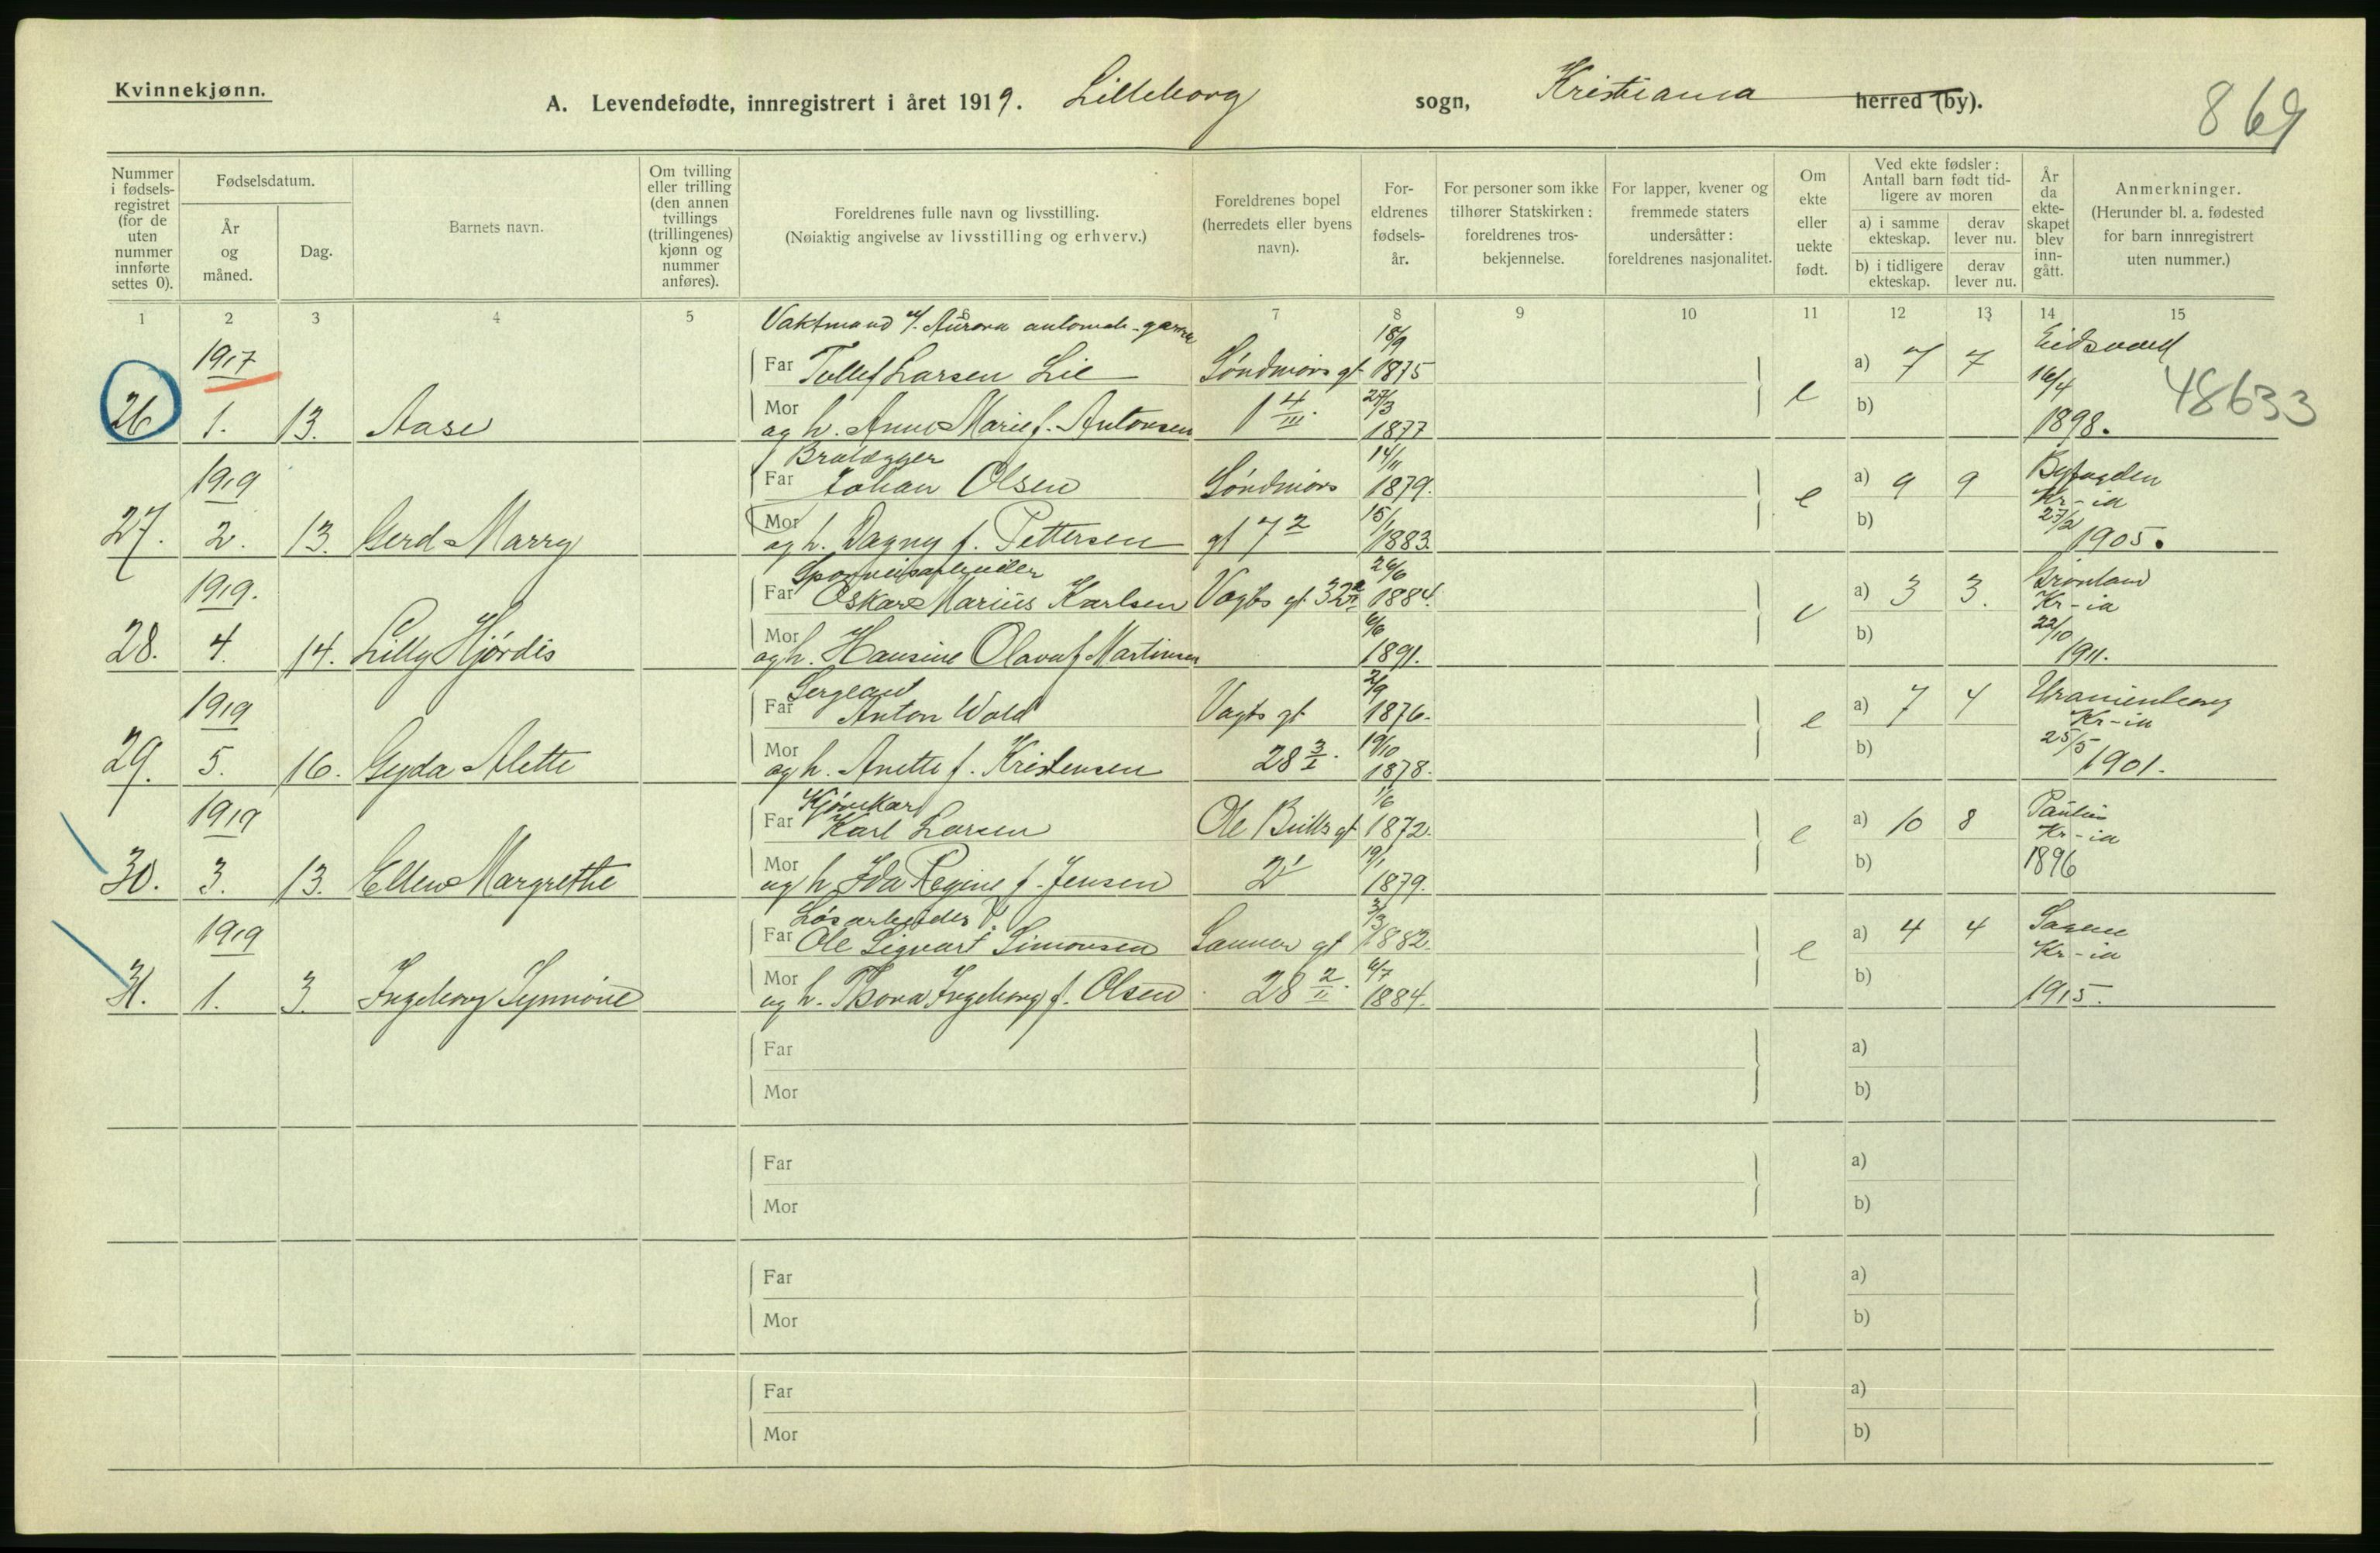 Kvinnekjønn.
A. Levendefødte, innregistrert i året 1919. Lilleborg sogn, Kristiania herred (by).
869
Nummer i fødselsregistret (for de uten nummer innførte settes 0).
Fødselsdatum.
År og måned.
Dag.
Barnets navn.
Om tvilling eller trilling (den annen tvillings (trillingenes) kjønn og nummer anføres).
Foreldrenes fulle navn og livsstilling. (Nøiaktig angivelse av livsstilling og erhverv.)
Foreldrenes bopel (herredets eller byens navn).
Foreldrenes fødselsår.
For personer som ikke tilhører Statskirken: foreldrenes trosbekjennelse.
For lapper, kvener og fremmede staters undersåtter: foreldrenes nasjonalitet.
Om ekte eller uekte født.
Ved ekte fødsler: Antall barn født tidligere av moren
a) i samme ekteskap.
derav lever nu.
b) i tidligere ekteskap.
derav lever nu.
År da ekteskapet blev inngått.
Anmerkninger. (Herunder bl. a. fødested for barn innregistrert uten nummer.)
1 2 3 4 5 7 8 9 10 11 12 13 14 15
Vaktmand v/. Aurora automob.
1917 Far Tollef Larsen Lie Søndmørs gt 18/9 1875 e a) 7 7 Eidsvold 16/4
26 1. 13. Aase Mor og h. Anne Marie f. Antonsen 1 4/III. 27/3 1877 b) 1898.
48633
Brolægger
1919 Far Johan Olsen Søndmørs 14/11 1879. e a) 9 9 Byfogden Kr-ia 27/2
27. 2. 13. Gerd Marry Mor og h. Dagny f. Pettersen gt 7 2 15/1 1883. b) 1905.
Sporveisarbeider
1919. Far Oskar Marius Karlsen Vogts gt. 32 26/6 1884. e a) 3 3. Grønland Kr-ia 22/10
28. 4. 14. Lilly Hjørdis Mor og h. Hansine Olava f Martinsen 6/6 1891. b) 1911.
Sergeant
1919 Far Anton Wold Vogts gt 2/9 1876. e a) 7 4 Uranienborg Kr-ia 25/5
29. 5. 16. Gyda Alette Mor og h. Anette f. Kristensen 28 3/I. 19/10 1878. b) 1901.
Kjørekar
1919 Far Karl Larsen Ole Bulls gt 1/6 1872. e a) 10 8 Paulus Kr-ia
30. 3. 13. Ellen Margrethe Mor og h Ida Regine f. Jensen 2 1 19/1 1879. b) 1896
Løsarbeider
1919 Far Ole Sigvart Simonsen Sanner gt 3/3 1882. e a) 4 4 Sagene Kr-ia
31. 1. 3. Ingeborg Synnøve Mor og h. Thora Ingeborg f. Olsen 28 2/II. 6/7 1884. b) 1915.
Far a)
Mor b)
Far a)
Mor b)
Far a)
Mor b)
Far a)
Mor b)